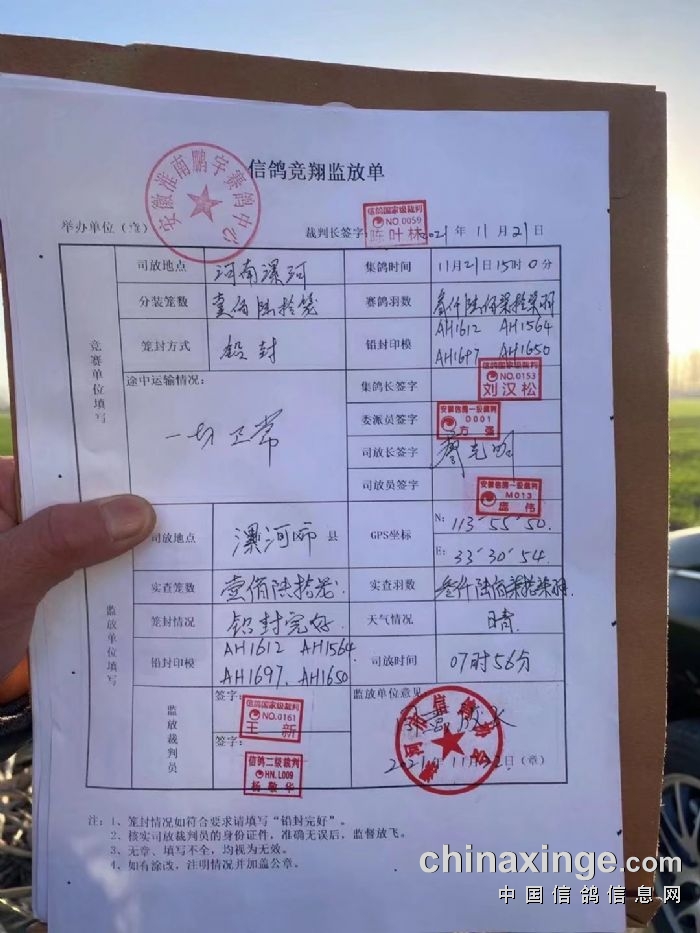 信鸽竞翔监放单
安徽淮南鹏宇赛鸽中心
举办单位（章）
裁判长签字：
信鸽国家级裁判
NO.0059
陈叶林
2021年11月21日
竞赛单位填写
司放地点 河南漯河 集鸽时间 11月21日15时0分
分装笼数 壹佰陆拾笼 赛鸽羽数 叁仟陆佰柒拾柒羽
笼封方式 铅封 铅封印模 AH1612 AH1564
AH1697 AH1650
途中运输情况：
一切正常
集鸽长签字
信鸽国家级裁判
NO.0153
刘汉松
委派员签字
安徽信鸽一级裁判
0001
司放长签字
司放员签字
安徽信鸽一级裁判
M013
监放单位填写
司放地点 漯河市 县 GPS坐标 N: 113°55′50.
E: 33°30′54.
实查笼数 壹佰陆拾笼. 实查羽数 叁仟陆佰柒拾柒羽.
笼封情况 铅封完好. 天气情况 晴.
铅封印模 AH1612 AH1564
AH1697. AH1650
司放时间 07时56分
监放裁判员
签字：
信鸽国家级裁判
NO.0161
王新
签字：
信鸽二级裁判
HN.L009
杨敬华
监放单位意见
2021年11月22日（章）
注：1、笼封情况如符合要求请填写“铅封完好”。
2、核实司放裁判员的身份证件，准确无误后，监督放飞。
3、无章、填写不全，均视为无效。
4、如有涂改，注明情况并加盖公章。
chinaxinge.com
中国信鸽信息网